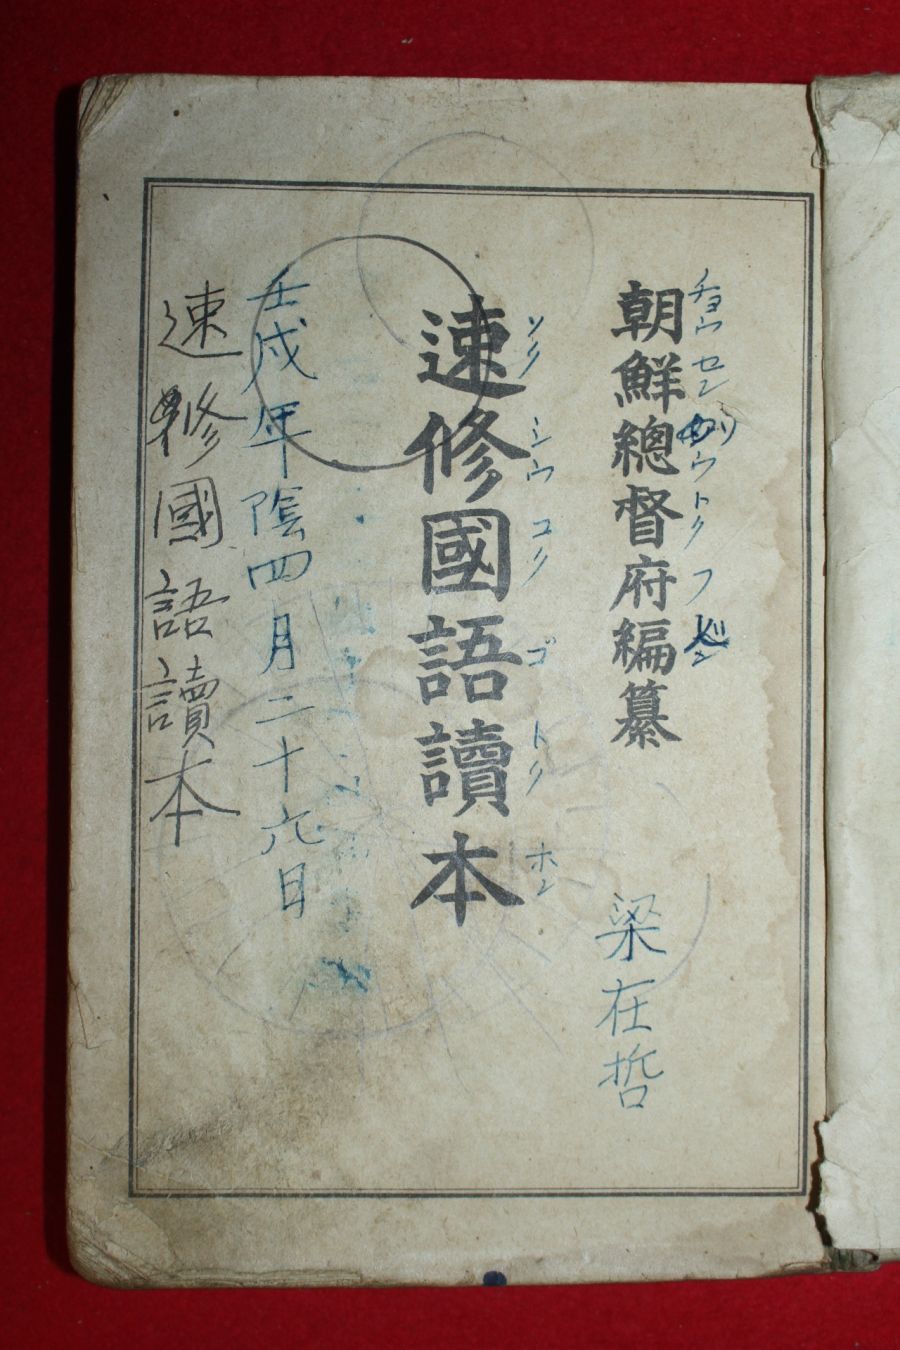 朝鮮總督府編纂
チョウセン ウトクフ
梁在哲
速修國語讀本
ソク シウ コク ゴ トク ホン
壬戌年陰四月二十六日
速修國語讀本